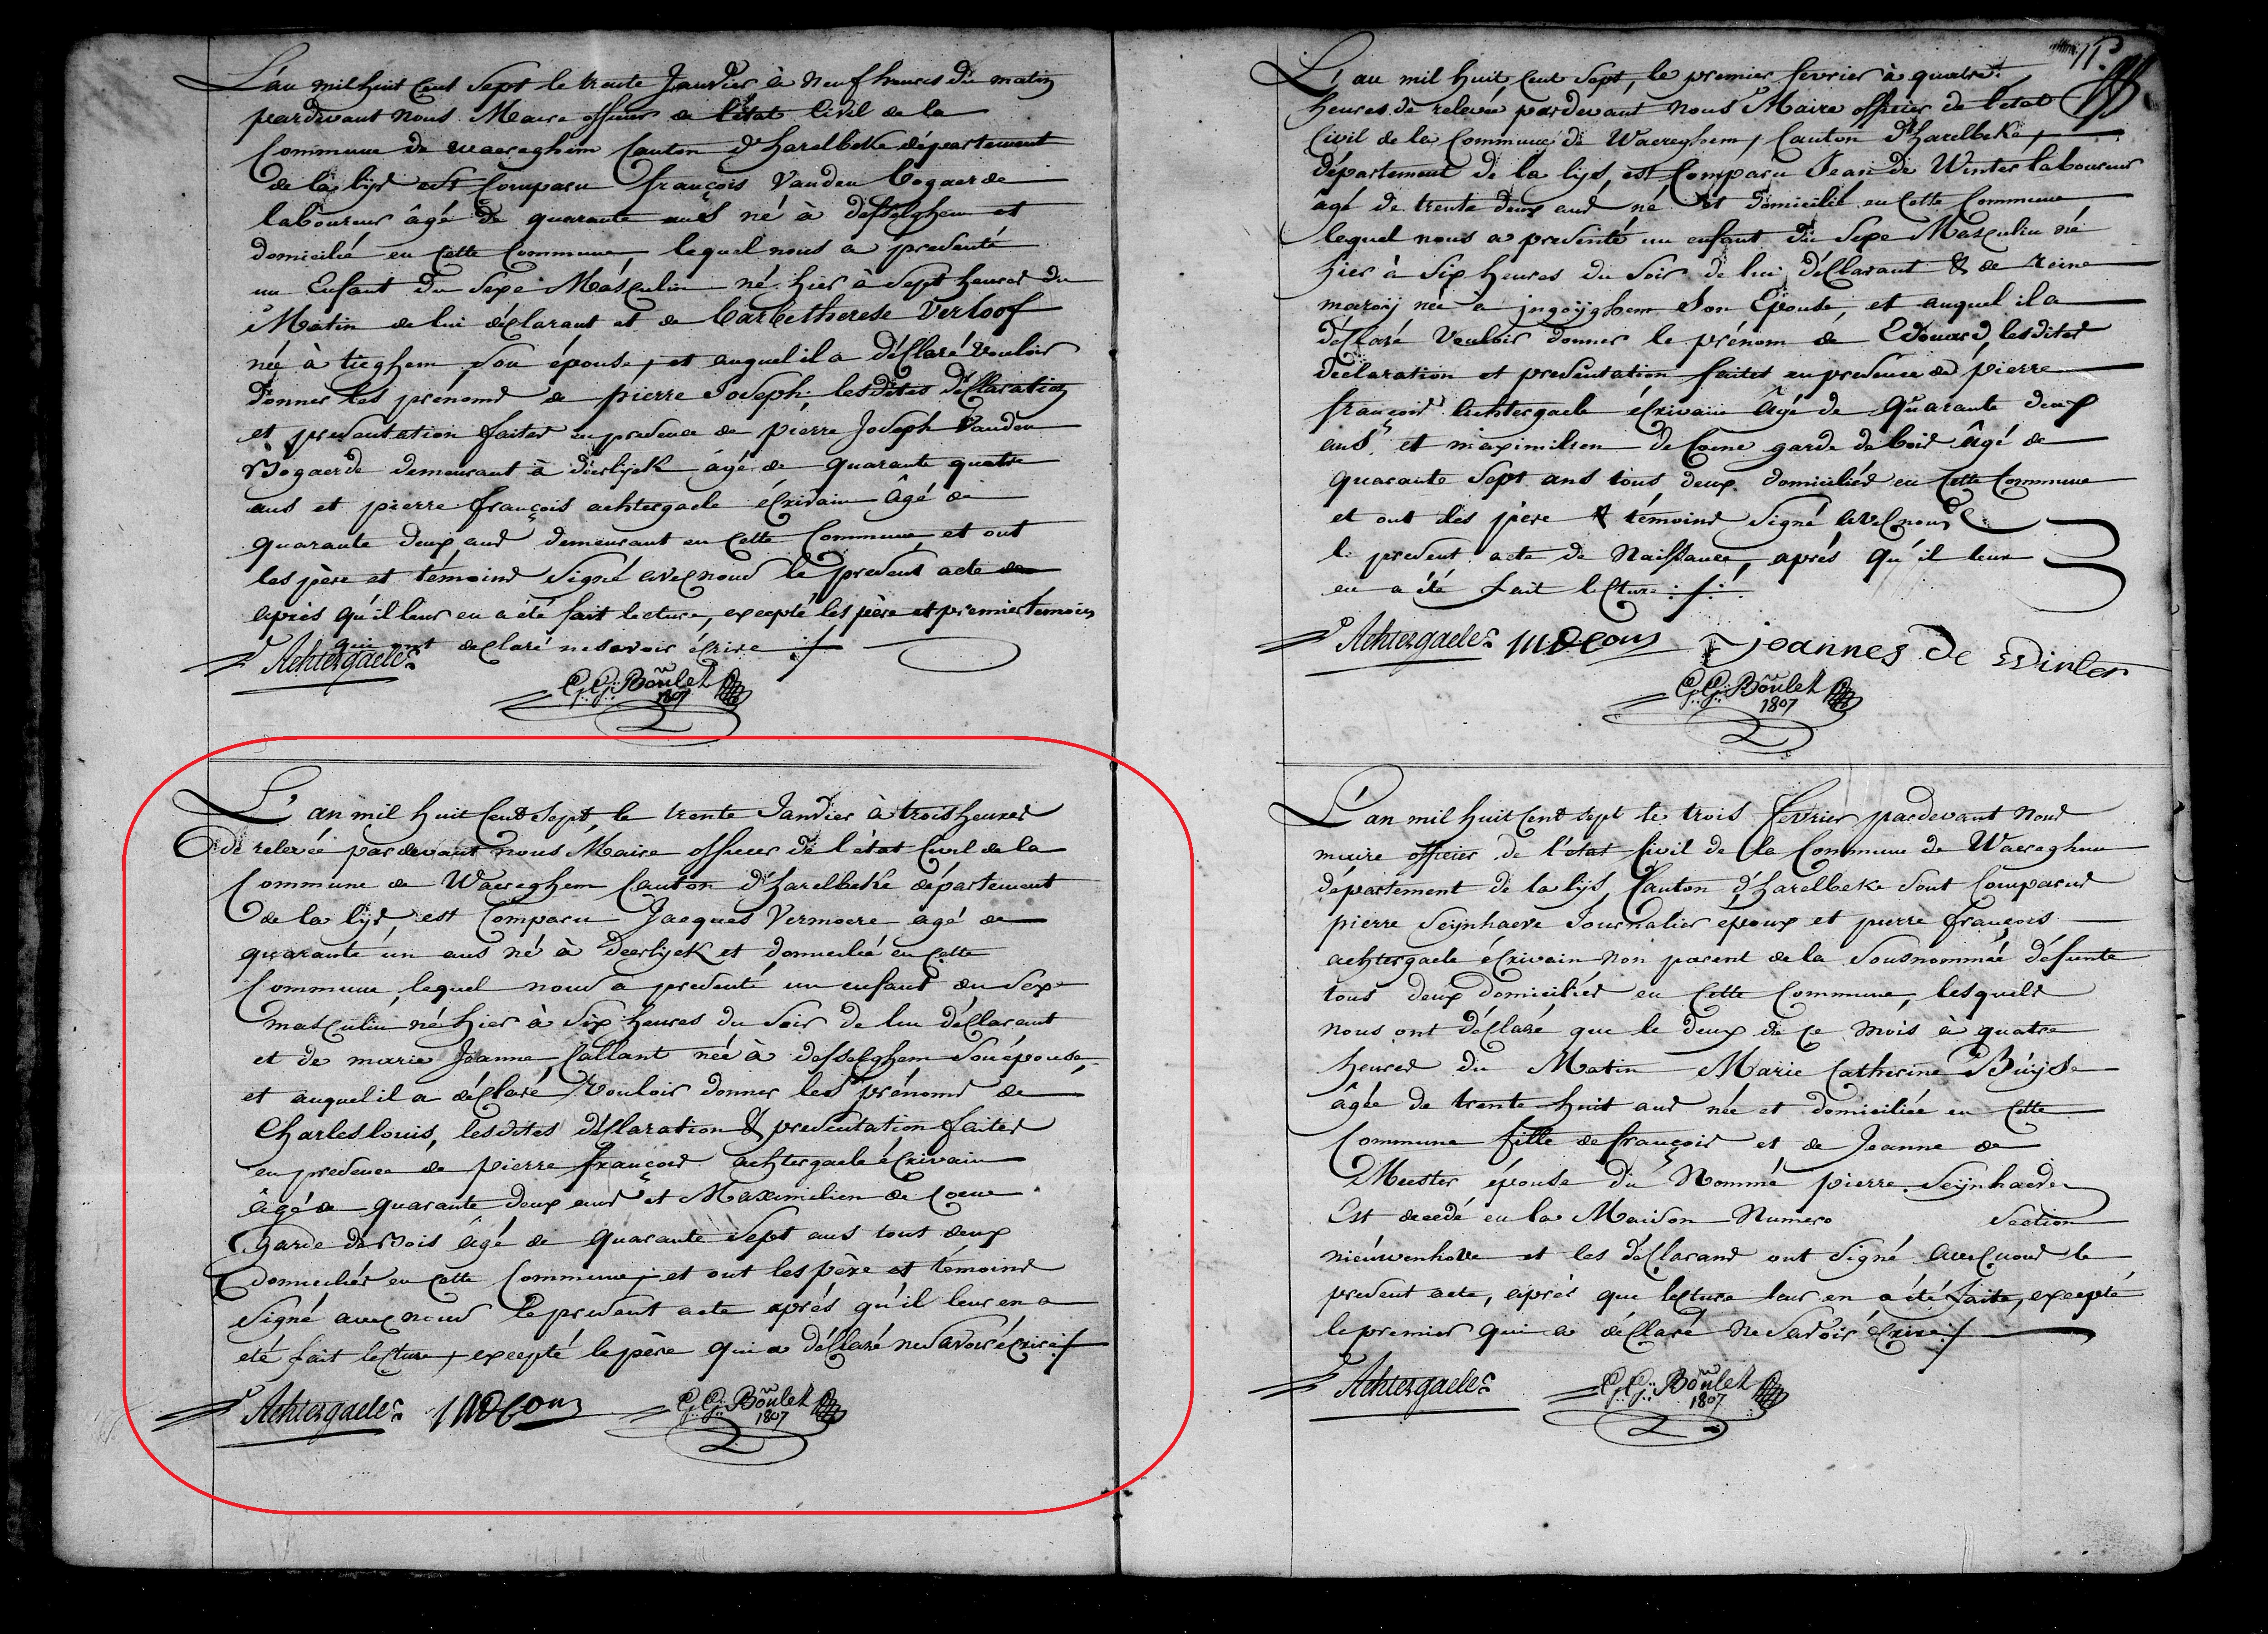 L'an mil huit Cent Sept le trente Janvier à neuf heures du matin
pardevant nous Maire officier de l'état Civil de la
Commune de Waereghem Canton d'harelbeke département
de la lijs est Comparu françois Vanden bogaerde
laboureur âgé de quarante ans né à desselghem et
domicilié en cette Commune, lequel nous a presenté
un Enfant du Sexe Masculin né hier à Sept heures du
Matin de lui déclarant et de barbe therese Verloof
née à tieghem son épouse, et auquel il a déclaré vouloir
donner les prénoms de pierre Joseph, lesdites déclaration
et presentation faites en presence de pierre Joseph Vanden
Bogaerde demeurant à deerlijck âgé de quarante quatre
ans et pierre françois achtergaele écrivain âgé de
quarante deux ans demeurant en cette Commune, et ont
les père et témoins signé avec nous le present acte
après qu'il leur en a été fait lecture, excepté les père et premier temoin
qui ont declaré ne savoir écrire
Achtergaele
G: G: Boulez
1807
L'an mil huit Cent Sept, le trente Janvier à trois heures
de relevée pardevant nous Maire officier de l'état Civil de la
Commune de Waereghem Canton d'harelbeke département
de la lijs, est Comparu Jacques Vermoere agé de
quarante un ans né à deerlijck et domicilié en cette
Commune, lequel nous a presenté un enfant du Sexe
masculin né hier à Six heures du Soir de lui déclarant
et de marie Jeanne Callant née à desselghem Son épouse,
et auquel il a déclaré Vouloir donner les prénoms de
Charles louis, lesdites déclaration & presentation faites
en presence de pierre françois achtergaele écrivain
âgé de quarante deux ans et Maximilien de Coene
Garde de Bois âgé de quarante Sept ans tous deux
domiciliés en cette Commune, et ont les père et témoins
Signé avec nous le present acte après qu'il leur en a
été fait lecture, excepté le père qui a déclaré ne Savoir écrire
Achtergaele
G: G: Boulez
1807
L'an mil huit Cent Sept, le premier fevrier à quatre
heures de relevée pardevant Nous Maire officier de l'etat
Civil de la Commune de Waereghem, Canton d'harelbeke,
département de la lijs, est Comparu Jean de Winter laboureur
âgé de trente deux ans né et domicilié en cette Commune
lequel nous a presenté un enfant du Sexe Masculin né
hier à Six heures du Soir de lui déclarant & de reine
né à jngoijghem Son Epouse, et auquel il a
déclaré Vouloir donner le prénom de Edouard, lesdites
déclaration et presentation faites en presence de pierre
françois achtergaele écrivain âgé de Quarante deux
ans, et maximilien de Coene garde de bois âgé de
quarante Sept ans tous deux domiciliés en Cette Commune
et ont les père & témoins Signé avec nous
le present acte de Naissance, après qu'il leur
en a été fait lecture
Achtergaele joannes De Winter
G: G: Boulez
1807
L'an mil huit Cent Sept le trois fevrier pardevant Nous
maire officier de l'état Civil de la Commune de Waereghem
département de la lijs, Canton d'harelbeke Sont Comparus
pierre Seijnhaeve Journalier epoux et pierre françois
achtergaele écrivain non parent de la Sousnommée défunte
tous deux domiciliés en Cette Commune, lesquels
nous ont déclaré que le deux de Ce mois à quatre
heures du Matin Marie Catherine Buijse
âgée de trente huit ans née et domiciliée en Cette
Commune fille de françois et de Jeanne de
Meester épouse du Nommé pierre Seijnhaeve
Est decedé en la Maison Numero Section
nieuwenhove et les déclarans ont Signé avec nous le
present acte, après que lecture leur en a été faite, excepté
le premier qui a déclaré ne Savoir écrire
Achtergaele
G: G: Boulez
1807